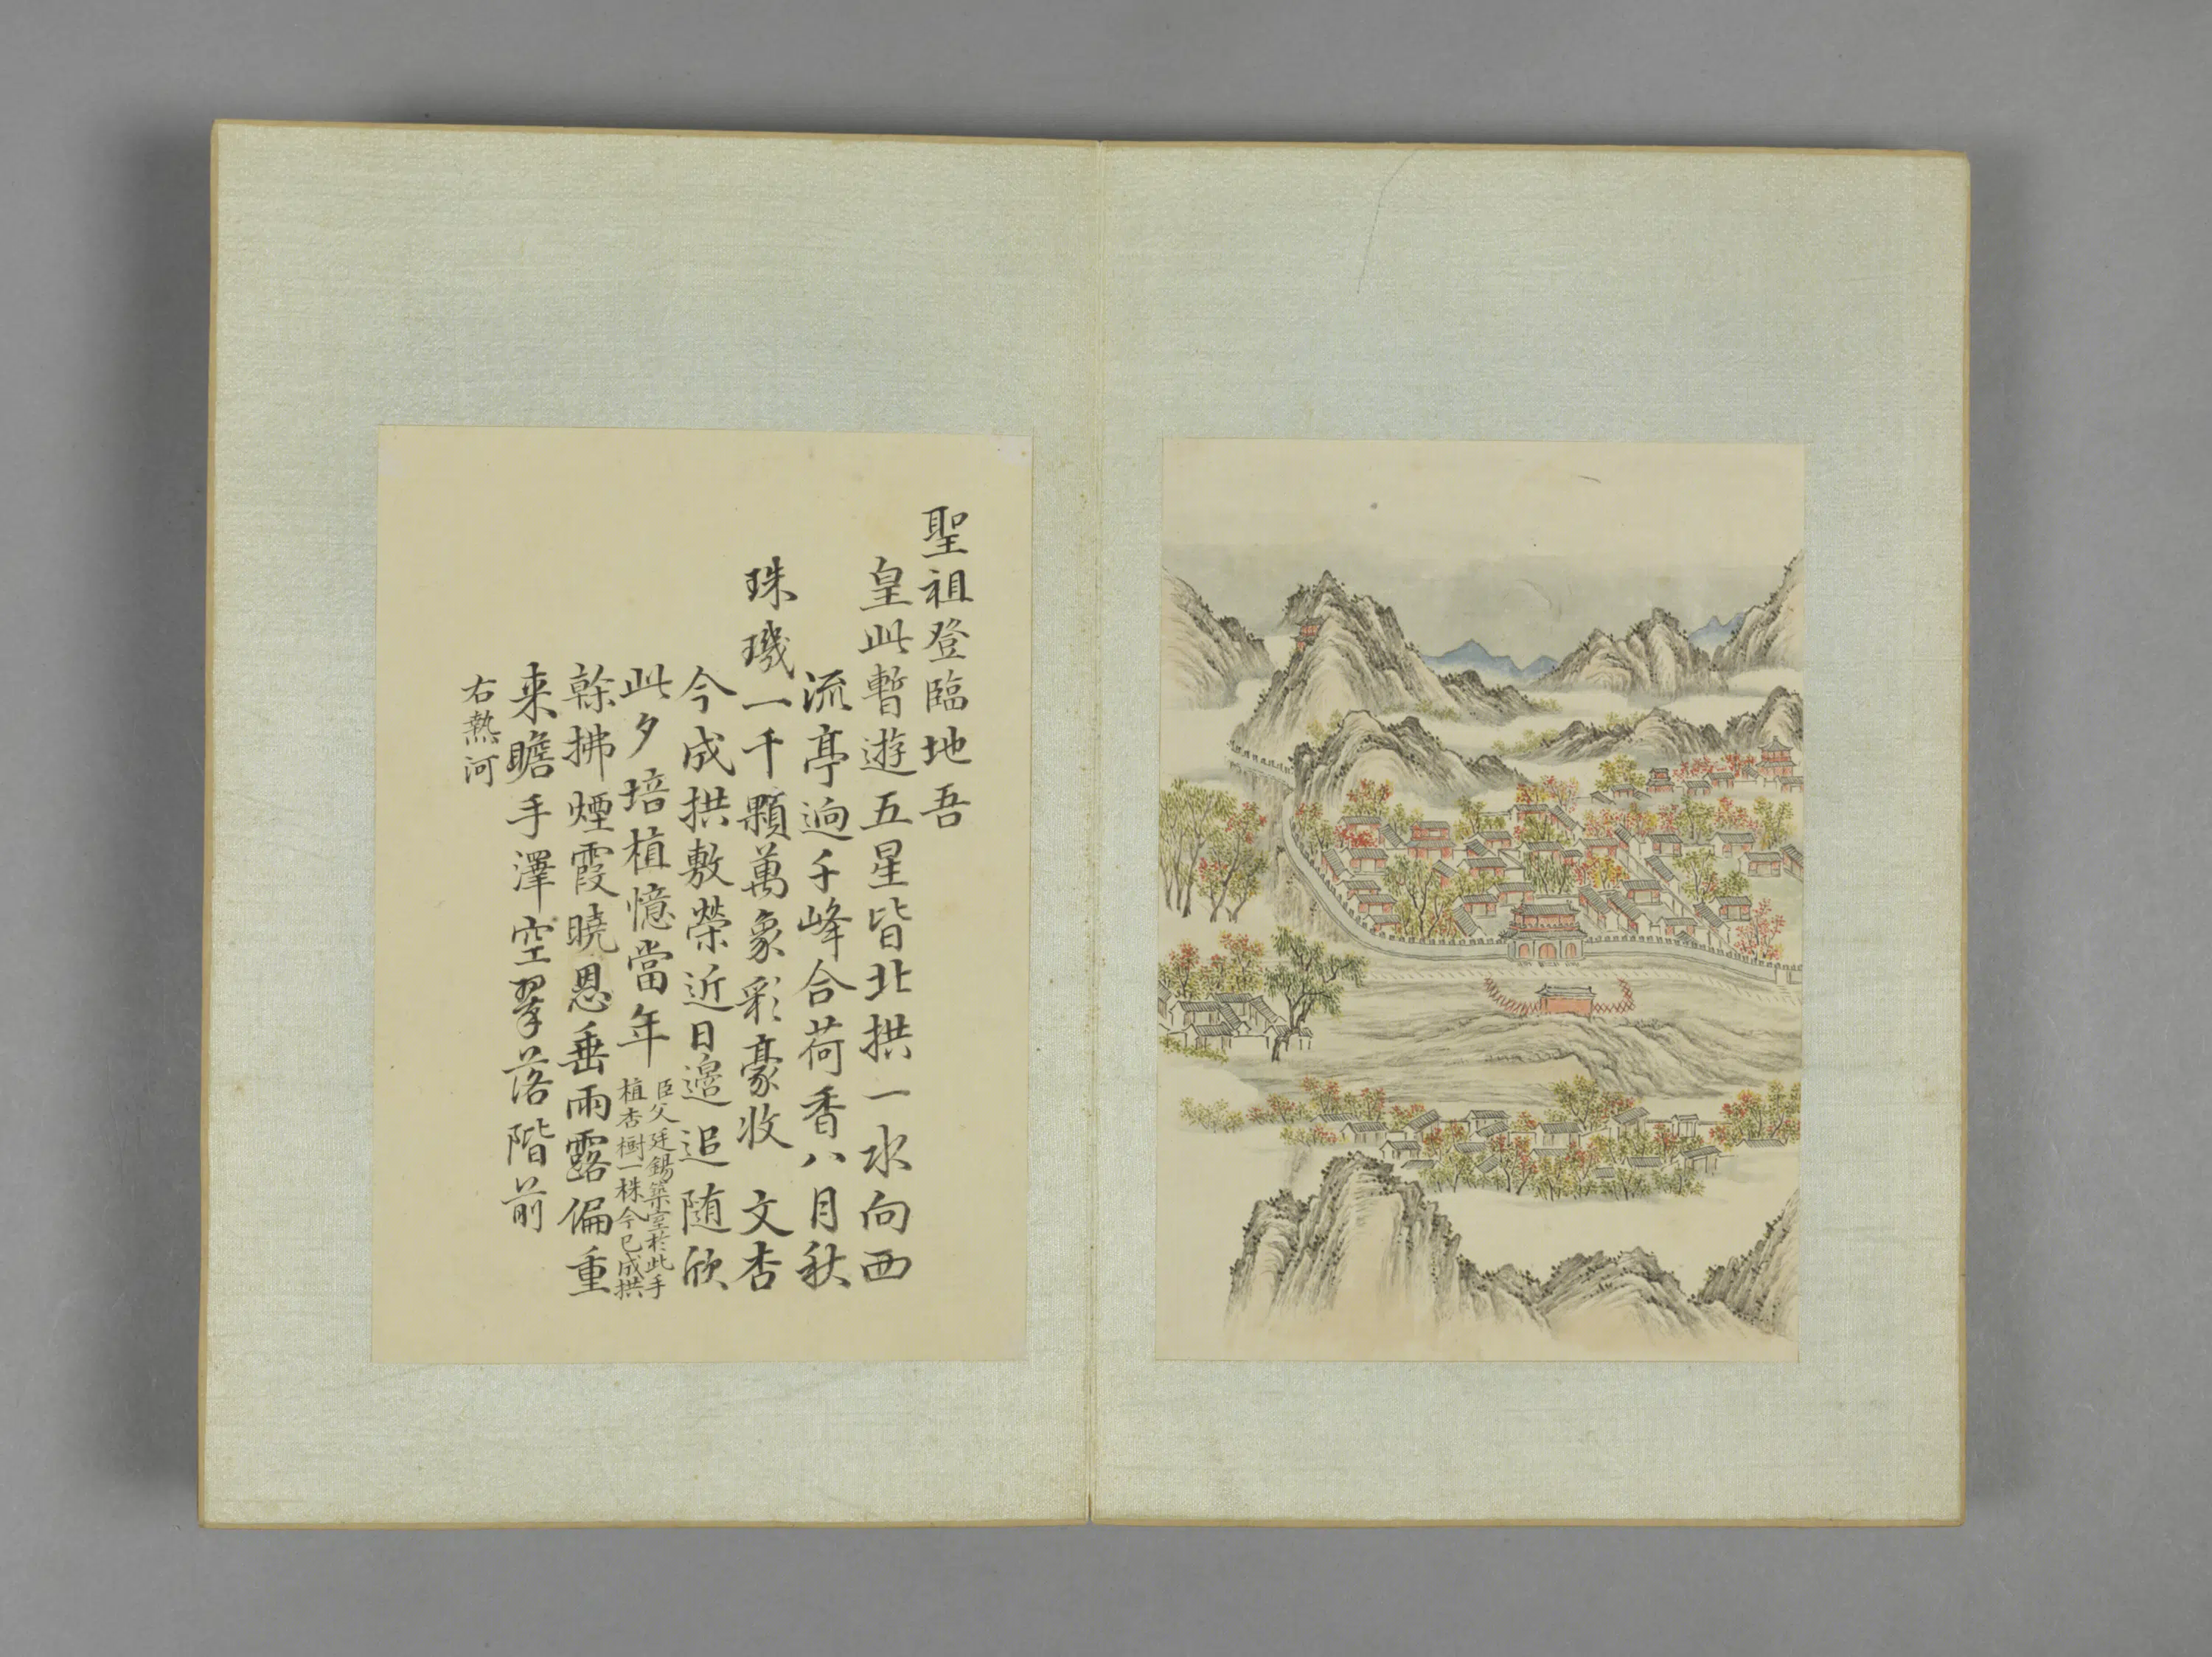 聖祖登臨地吾
皇此暫遊五星皆北拱一水向西
流亭逈千峰合荷香八月秋
珠璣一千顆萬象彩豪收　文杏
今成拱敷榮近日邉追随欣
此夕培植憶當年
臣父廷錫築室於此手
植杏樹一株今已成拱
榦拂煙霞曉恩垂雨露偏重
来瞻手澤空翠落階前
右熱河